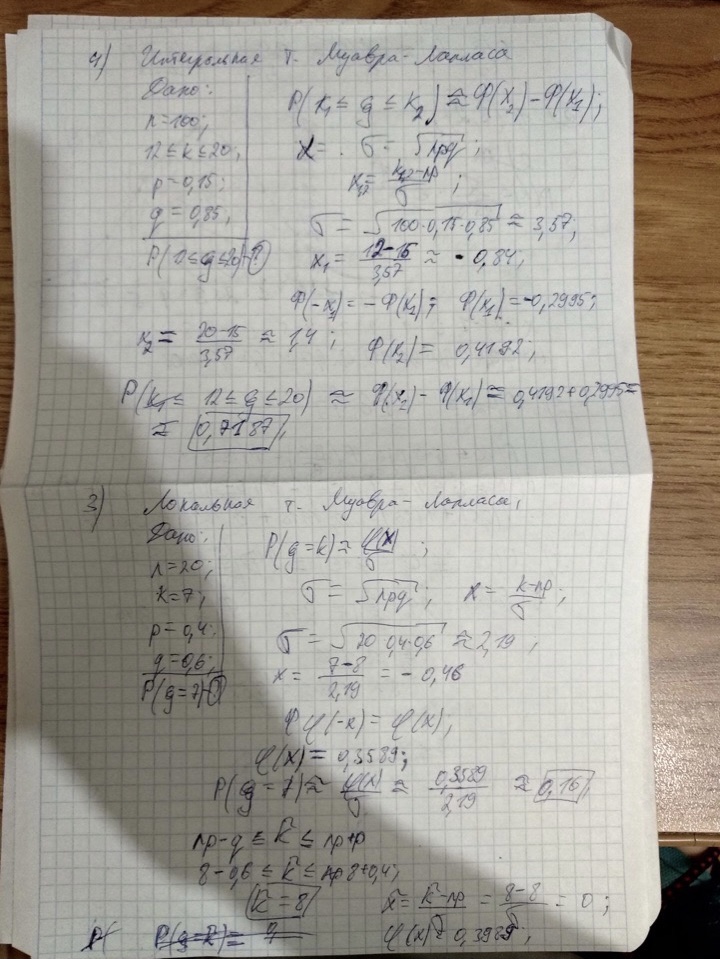 4) Интегральная т. Муавра-Лапласа
Дано:
n=100;
12≤k≤20;
p=0,15;
q=0,85;
P(12≤g≤20)-?
P(k₁≤g≤k₂)≈Φ(x₂)-Φ(x₁);
x= . σ=√npq;
σ=√100·0,15·0,85≈3,57;
x₁=12-15/3,57≈-0,84;
Φ(-x₁)=-Φ(x₁); Φ(x₁)=-0,2995;
x₂=20-15/3,57≈1,4; Φ(x₂)=0,4192;
P(12≤g≤20)≈Φ(x₂)-Φ(x₁)≈0,4192+0,2995≈
≈0,7187.
3) Локальная т. Муавра-Лапласа,
Дано:
n=20;
k=7;
p=0,4;
q=0,6;
P(g=7)-?
P(g=k)≈φ(x)/σ;
σ=√npq; x=k-np/σ;
σ=√20·0,4·0,6≈2,19;
x=7-8/2,19=-0,46
φ(-x)=φ(x);
φ(x)=0,3589;
P(g=7)≈φ(x)/σ≈0,3589/2,19≈0,16.
np-q≤k̄≤np+p
8-0,6≤k̄≤8+0,4;
k̄=8
x̄=k̄-np/σ=8-8/σ=0;
φ(x)=0,3989;